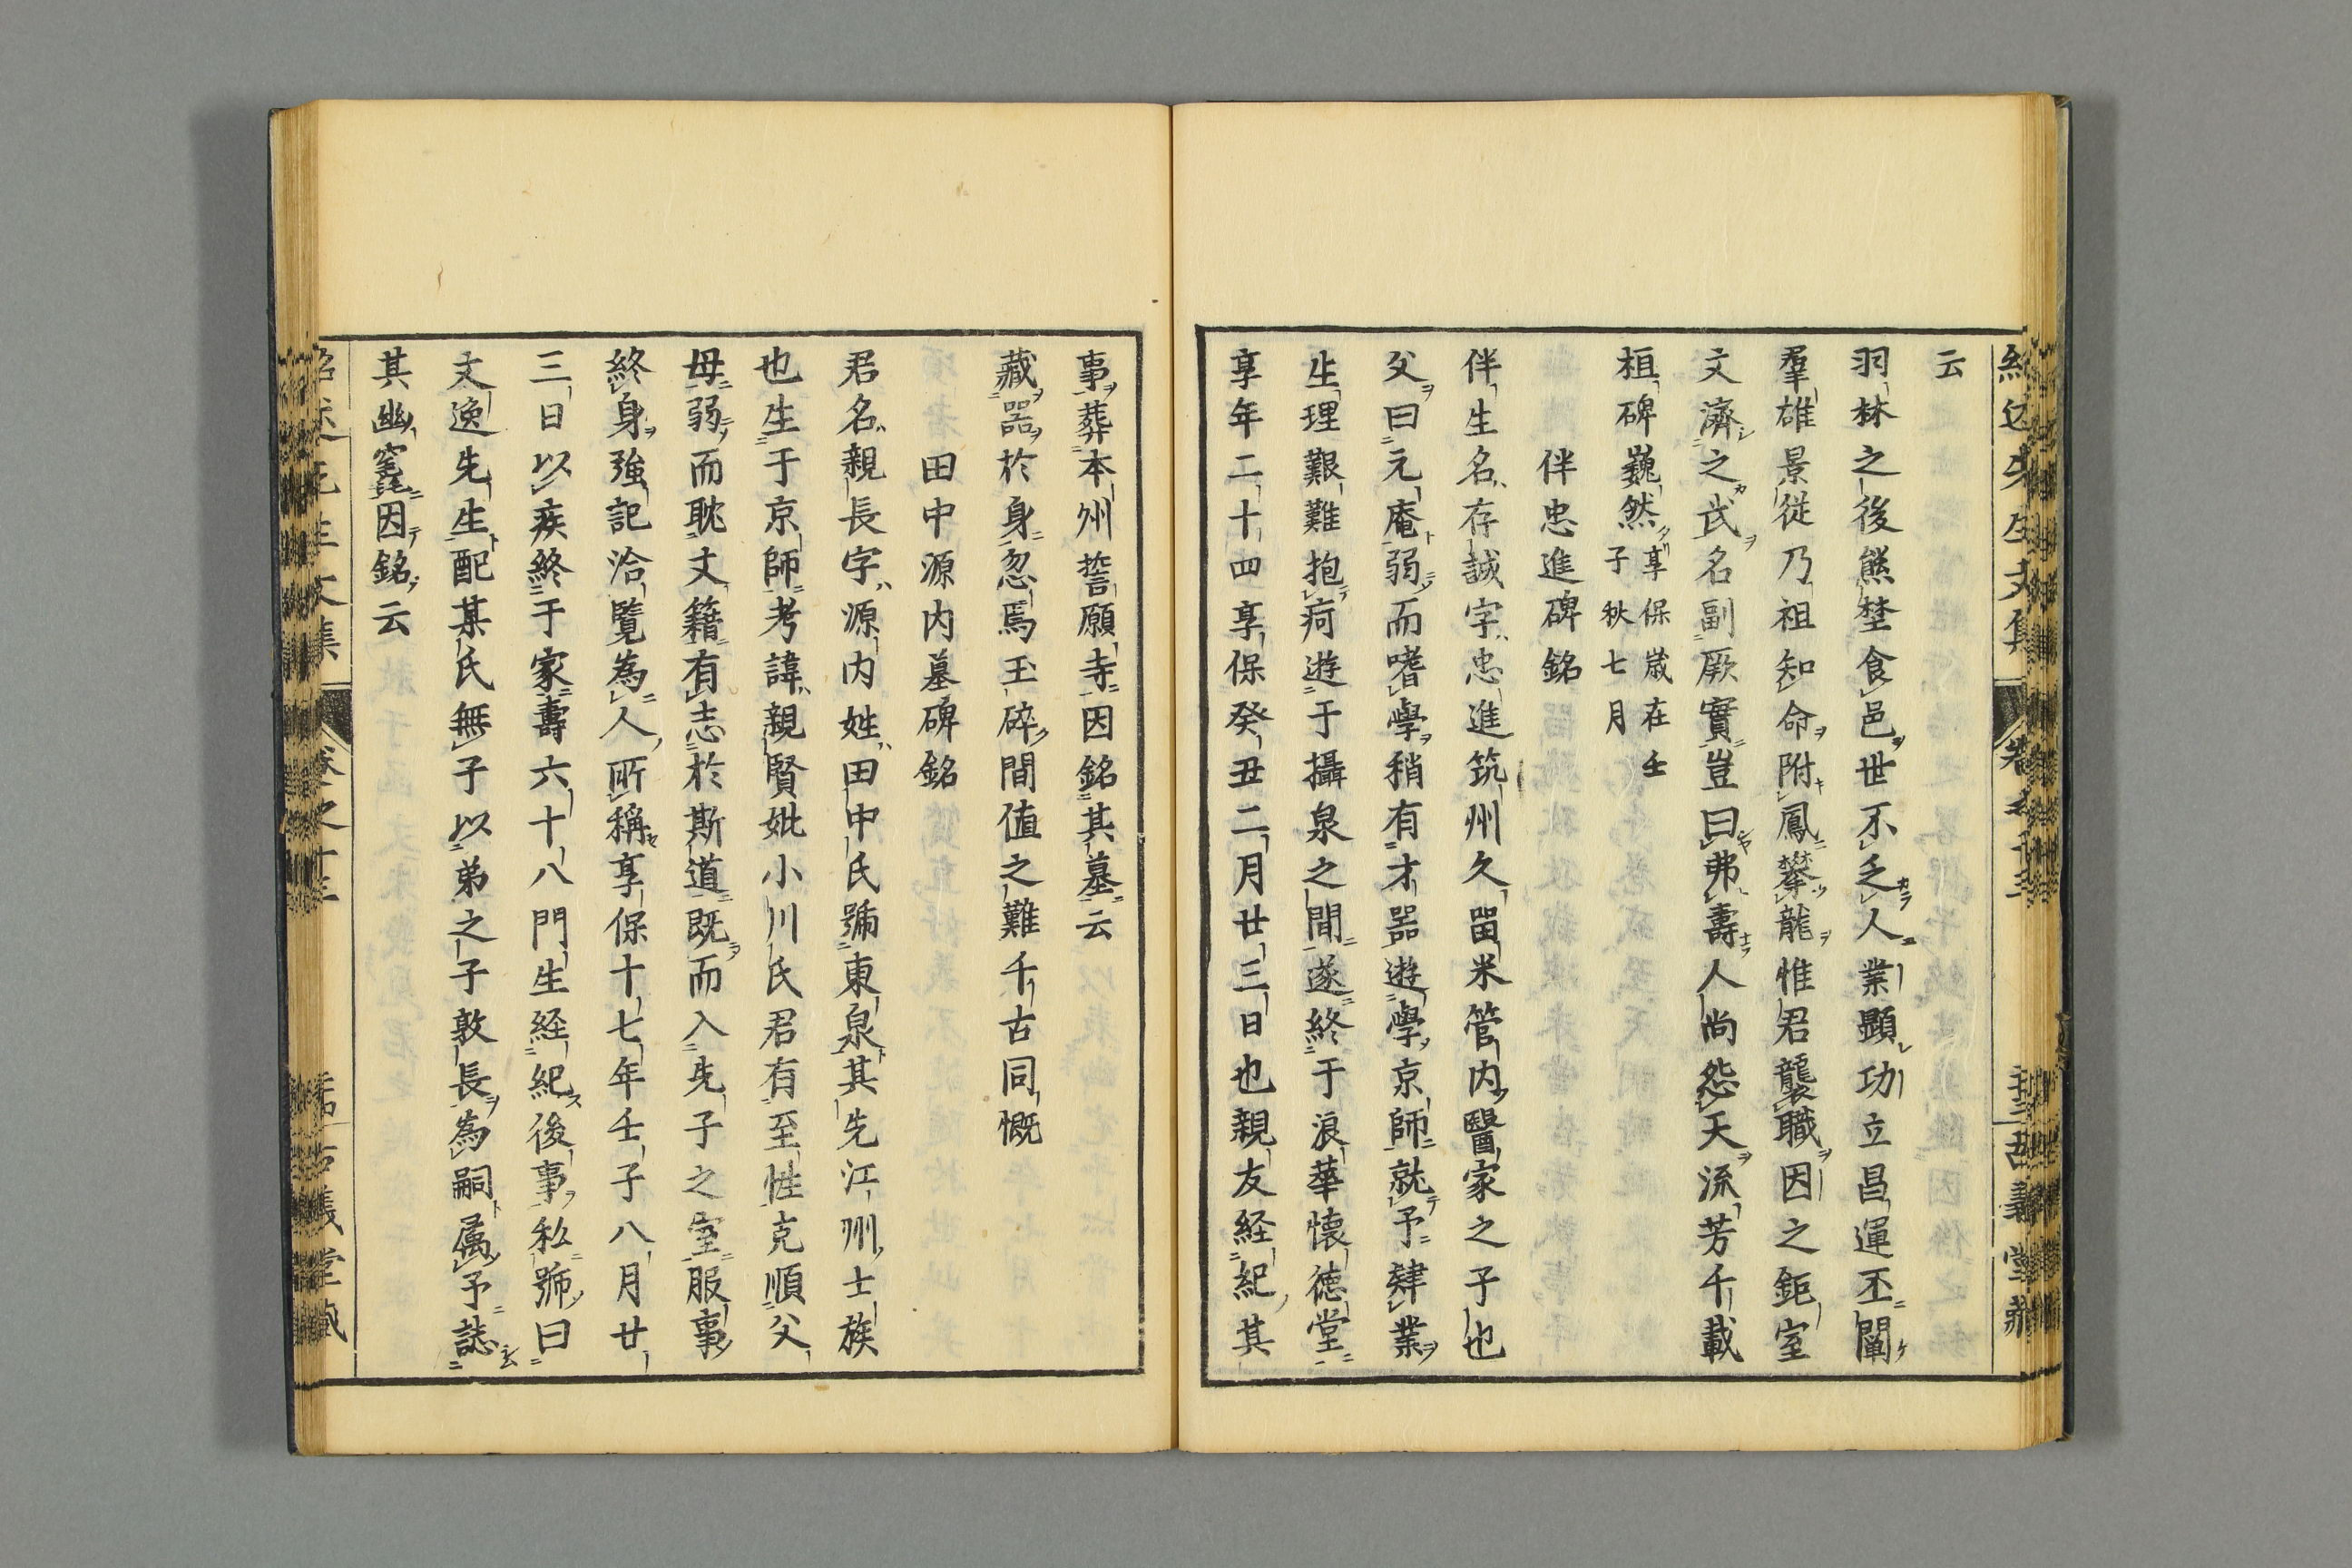 云
羽林之後熊埜食邑世不乏人業顯功立昌運丕闡
羣雄景從乃祖知命附鳳攀龍惟君襲職因之鉅室
文濟之武名副厥實豈曰弗壽人尚怨天流芳千載
桓碑巍然享保歲在壬
子秋七月
伴忠進碑銘
伴生名存誠字忠進筑州久留米管內醫家之子也
父曰元庵弱而嗜學稍有才器遊學京師就予肄業
生理艱難抱痾遊于攝泉之間遂終于浪華懷德堂
享年二十四享保癸丑二月廿三日也親友経紀其
事葬本州誓願寺因銘其墓云
藏器於身忽焉玉碎間值之難千古同慨
田中源內墓碑銘
君名親長字源內姓田中氏號東泉其先江州士族
也生于京師考諱親賢妣小川氏君有至性克順父
母弱而耽文籍有志於斯道既而入先子之室服事
終身強記洽覽為人所稱享保十七年壬子八月廿
三日以疾終于家壽六十八門生経紀後事私號曰
文逸先生配某氏無子以弟之子敦長為嗣属予誌
其幽窀因銘云